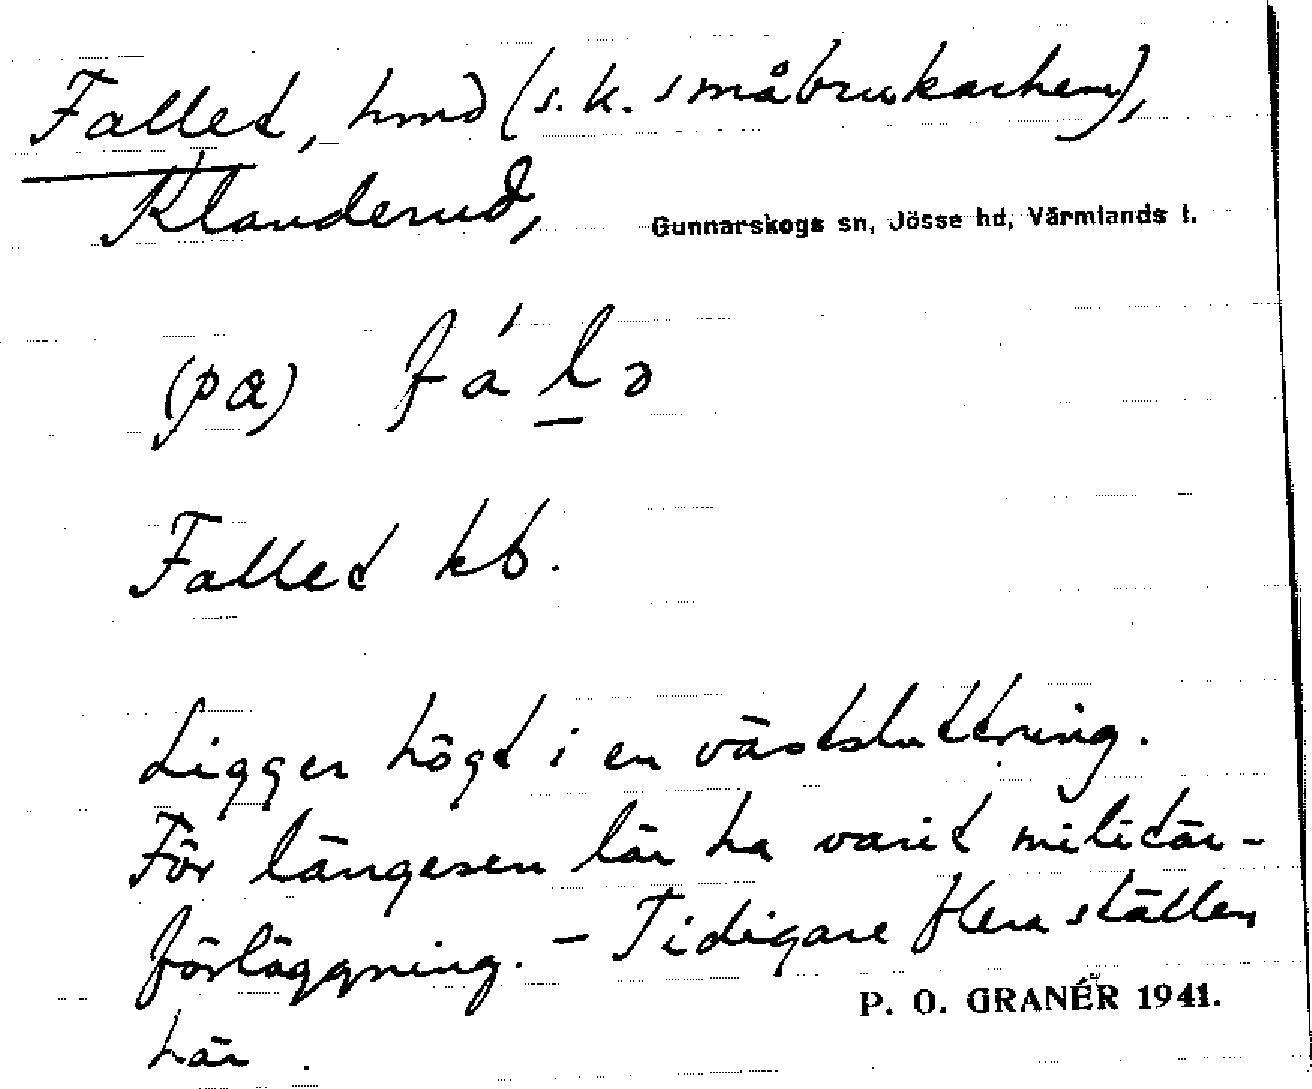 Fallet, hmd (s. k. småbrukarhem),
Klauderud,
Gunnarskogs sn, Jösse hd, Värmlands l.
(pa) fá l̲ə
Fallet kb.
Ligger högt i en västsluttning.
För längesen lär ha varit militär-
förläggning. – Tidigare flera ställen
här.
P. O. GRANÉR 1941.